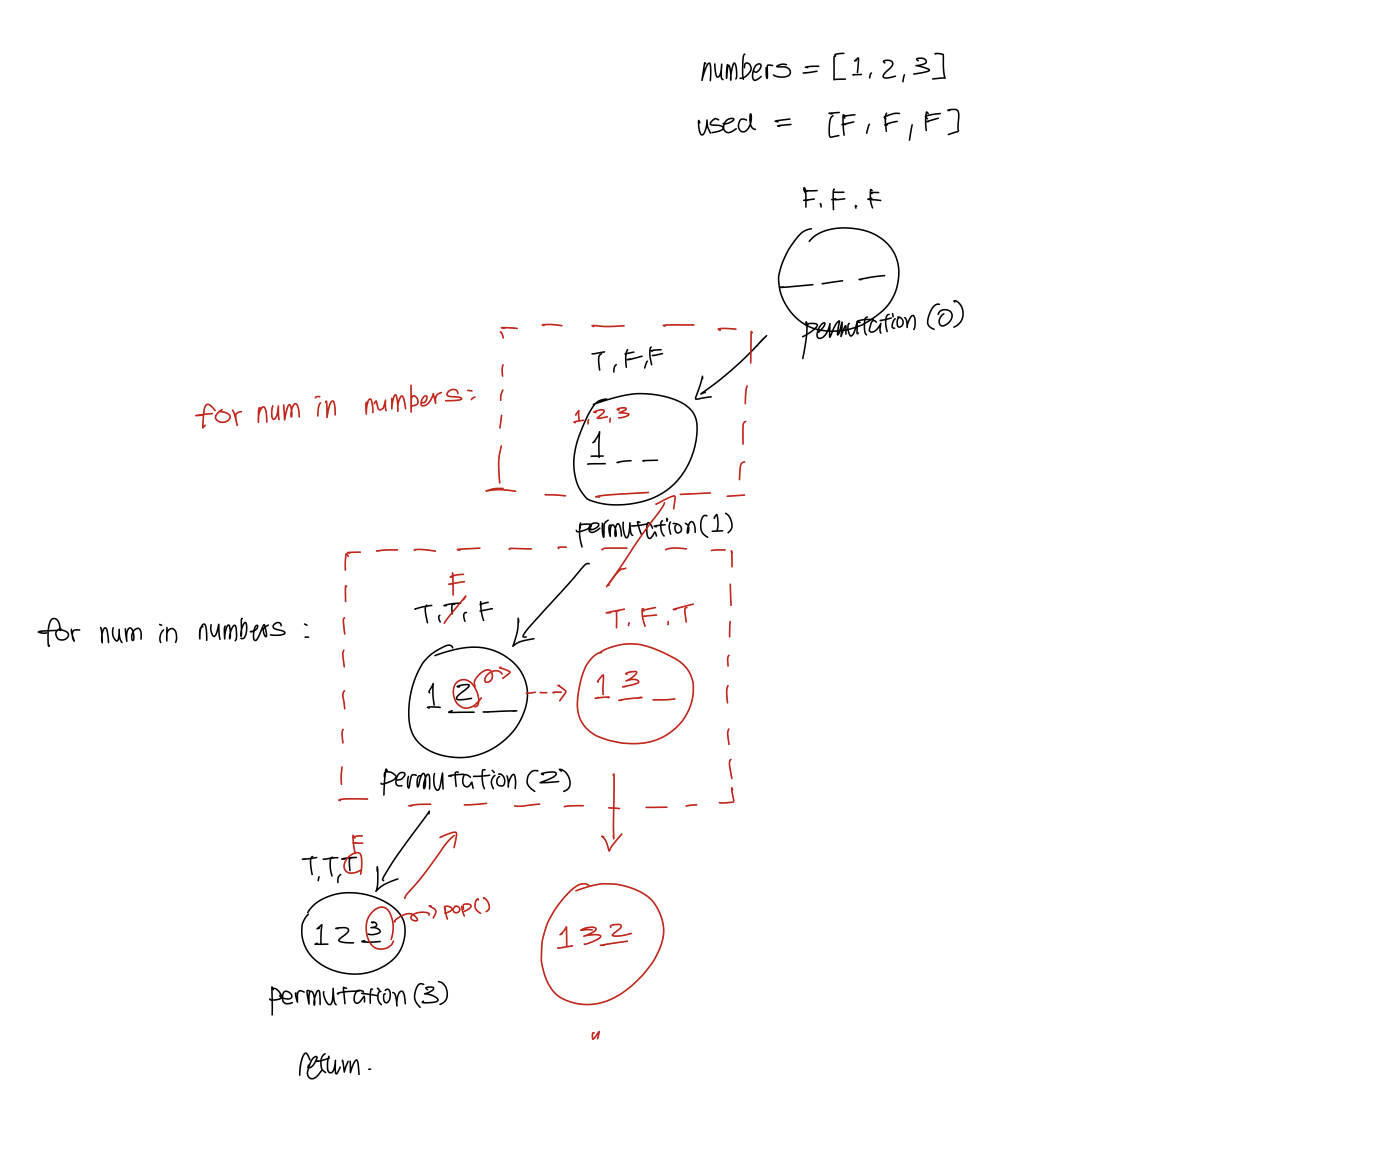 numbers = [1, 2, 3]
used = [F, F, F]
F. F. F
permutation (0)
T, F, F
for num in numbers:
1, 2, 3
1 _ _
permutation(1)
F
T, T, F
T. F. T
for num in numbers :
1 2 _
1 3 _
permutation (2)
F
T, T, T
1 2 3
pop()
1 3 2
permutation (3)
"
return.